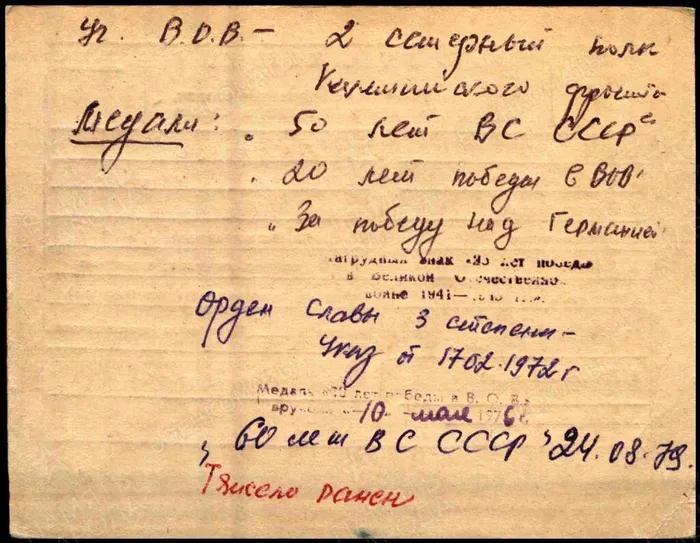 Уч. В.О.В. – 2 северный полк
Калининского фронта
Медали: "50 лет ВС СССР"
"20 лет победы в ВОВ"
"За победу над Германией
Нагрудный знак «25 лет победы
в Великой Отечественно
войне 1941—1945 г.г.
Орден Славы 3 степени –
Указ от 17.02.1972 г
Медаль «30 лет победы в В. О. В.»
вручена 10 мая 1976 г.
"60 лет ВС СССР" 24.08.79.
Тяжело ранен